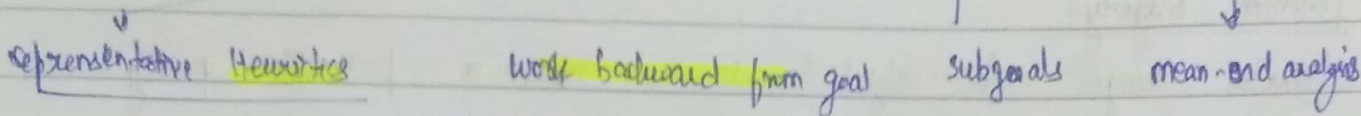 reprensentative Heuristics work backward from goal subgoals mean-end analysis